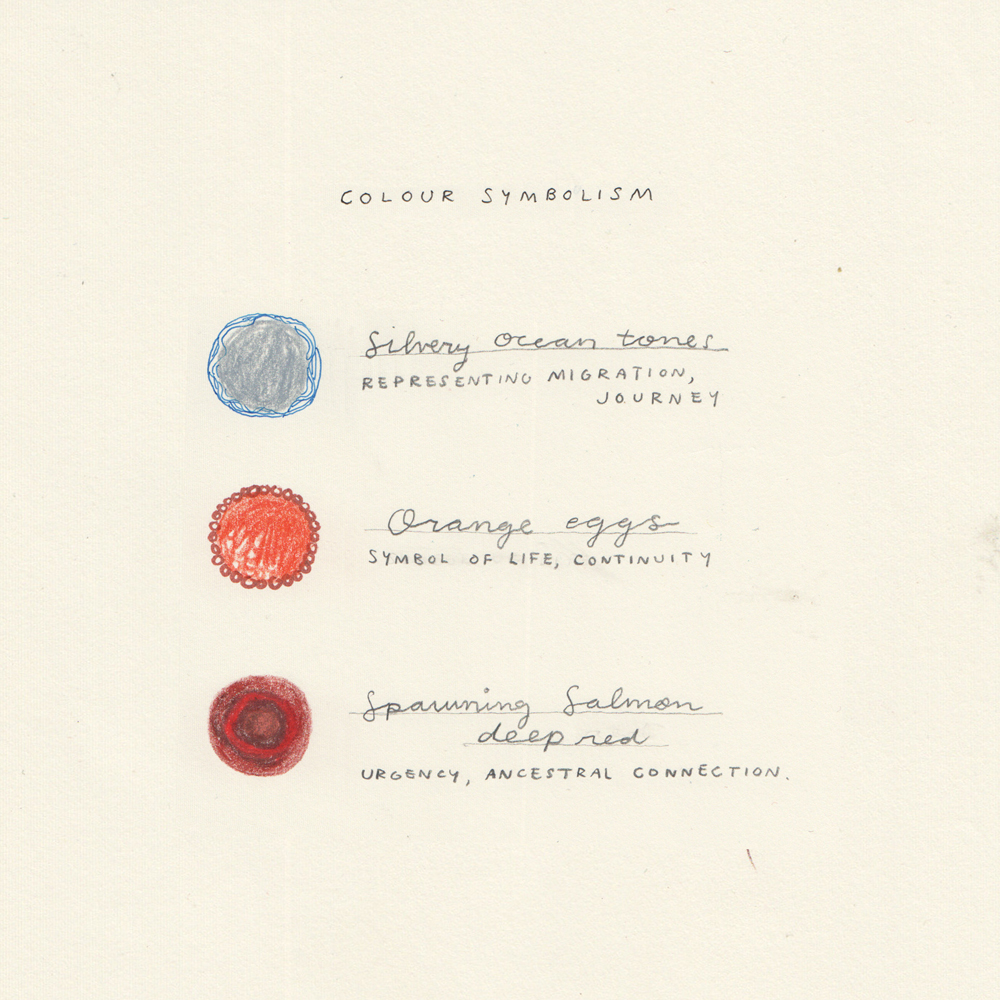 COLOUR SYMBOLISM
Silvery ocean tones
REPRESENTING MIGRATION,
JOURNEY
Orange eggs
SYMBOL OF LIFE, CONTINUITY
Spawning Salmon
deep red
URGENCY, ANCESTRAL CONNECTION.